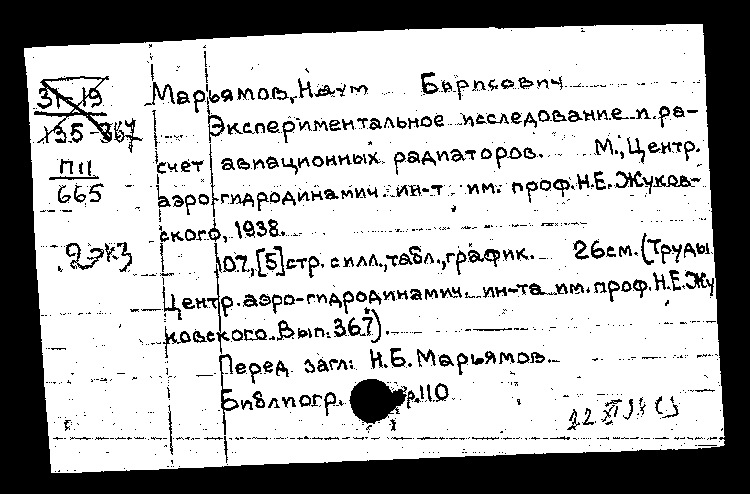 31-19
135-367
П11
665
2экз
Марьямов, Наум Борисович
Экспериментальное исследование и ра-
счет авиационных радиаторов. М., Центр.
аэро-гидродинамич. ин-т им. проф. Н.Е. Жуков-
ского, 1938.
107, [5] стр. с илл., табл., график. 26см. (Труды
Центр. аэро-гидродинамич. ин-та им. проф. Н.Е. Жу
ковского. Вып. 367).
Перед загл: Н.Б. Марьямов.
Библиогр. р. 110